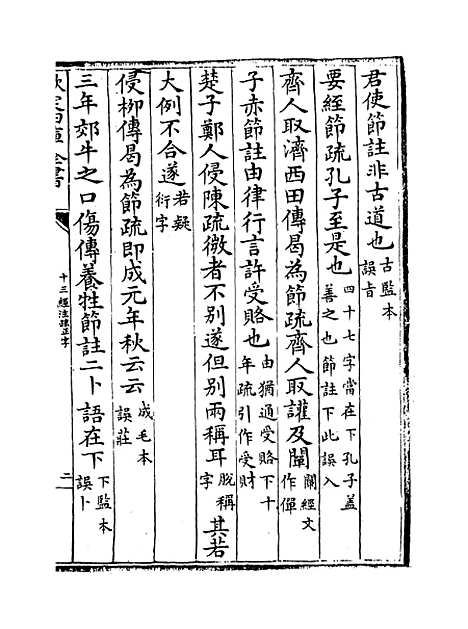 君使節註非古道也古監本誤音
要經節疏孔子至是也四十七字當在下孔子蓋善之也節註下此誤入
齊人取濟西田傳曷為節疏齊人取讙及闡闡經文作僤
子赤節註由律行言許受賂也由猶通受賂下十年疏引作受財
楚子鄭人侵陳疏微者不別遂但別兩稱耳脫稱字其若
大例不合遂若疑衍字
侵柳傳曷為節疏即成元年秋云云成毛本誤莊
三年郊牛之口傷傳養牲節註二卜語在下下監本誤卜
欽定四庫全書
十三經注疏正字
二